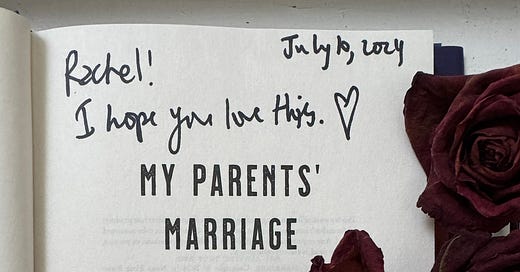 Rachel! July 10, 2024
I hope you love this. ♡
MY PARENTS'
MARRIAGE